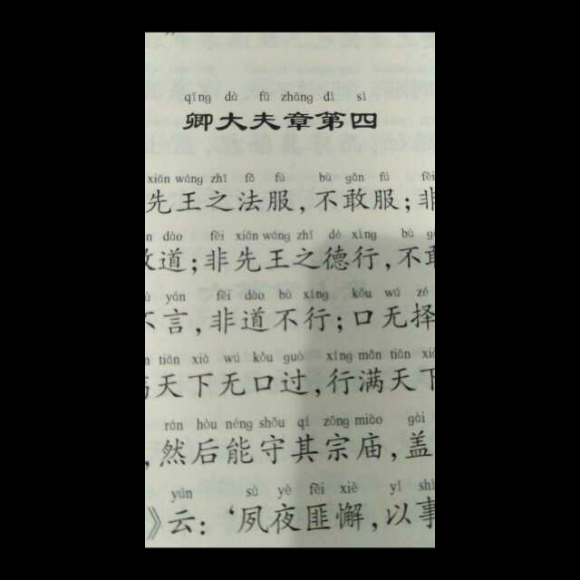 ”
qīng dà fū zhāng dì sì
卿大夫章第四
xiān wáng zhī fǎ fú bù gǎn fú fēi
先王之法服，不敢服；非
dào fēi xiān wáng zhī dé xìng bù
道；非先王之德行，不敢
yán fēi dào bù xíng kǒu wú zé
不言，非道不行；口无择
tiān xià wú kǒu guò xíng mǎn tiān xià
满天下无口过，行满天下
rán hòu néng shǒu qí zōng miào gài
，然后能守其宗庙，盖
yún sù yè fěi xiè yǐ shì
》云：‘夙夜匪懈，以事